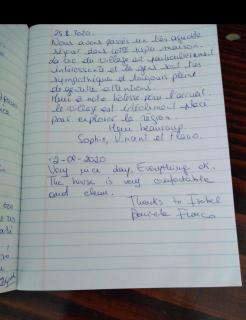 25.8.2020.
Nous avons passés un très agréable
séjour dans cette super maison.
La vie du village est particulièrement
intéressante et les gens sont très
sympathique et toujours plein
de gentille attentions.
Merci à notre hôtesse pour l'accueil
Le village est idéalement placé
pour explorer la région.
Merci beaucoup.
Sophie, Vincent et
2-09-2020
Very nice day, Everything ok.
The house is very comfortable
and clean.
Thanks to Isabel
Daniela Franco